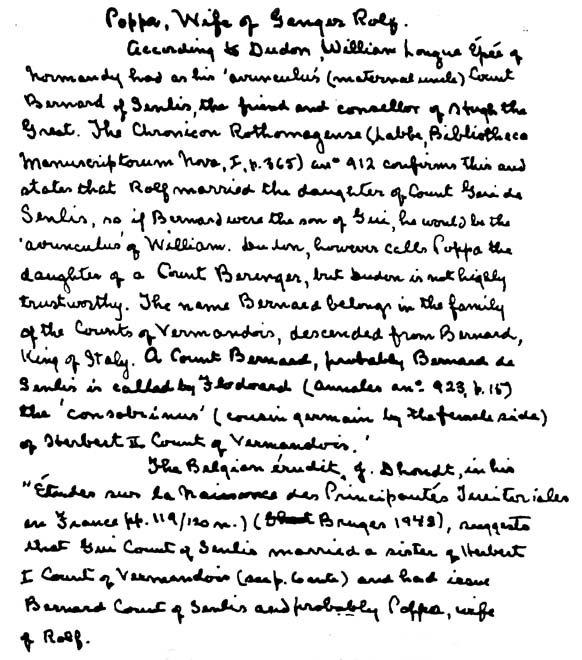 Poppa, Wife of Ganger Rolf.
According to Dudon, William Longue Épée of
Normandy had as his 'avunculus' (maternal uncle) Count
Bernard of Senlis, the friend and consellor of Hugh the
Great. The Chronicon Rothomagense (Labbe, Bibliotheca
Manuscriptorum Nova, I, p. 365) anº 912 confirms this and
states that Rolf married the daughter of Count Gui de
Senlis, so if Bernard were the son of Gui, he would be the
'avunculus' of William. Dudon, however calls Poppa the
daughter of a Count Berenger, but Dudon is not highly
trustworthy. The name Bernard belongs in the family
of the Counts of Vermandois, descended from Bernard,
King of Italy. A Count Bernard, probably Bernard de
Senlis is called by Flodoard (Annales anº 923, p. 15)
the 'consobrinus' (cousin germain by the female side)
of Herbert II Count of Vermandois.'
The Belgian érudit, J. Dhondt, in his
"Études sur la Naissance des Principautés Territoriales
en France pp. 119/120 n.) (Bruges 1948), suggests
that Gui Count of Senlis married a sister of Herbert
I Count of Vermandois (see p. ante) and had issue
Bernard Count of Senlis and probably Poppa, wife
of Rolf.